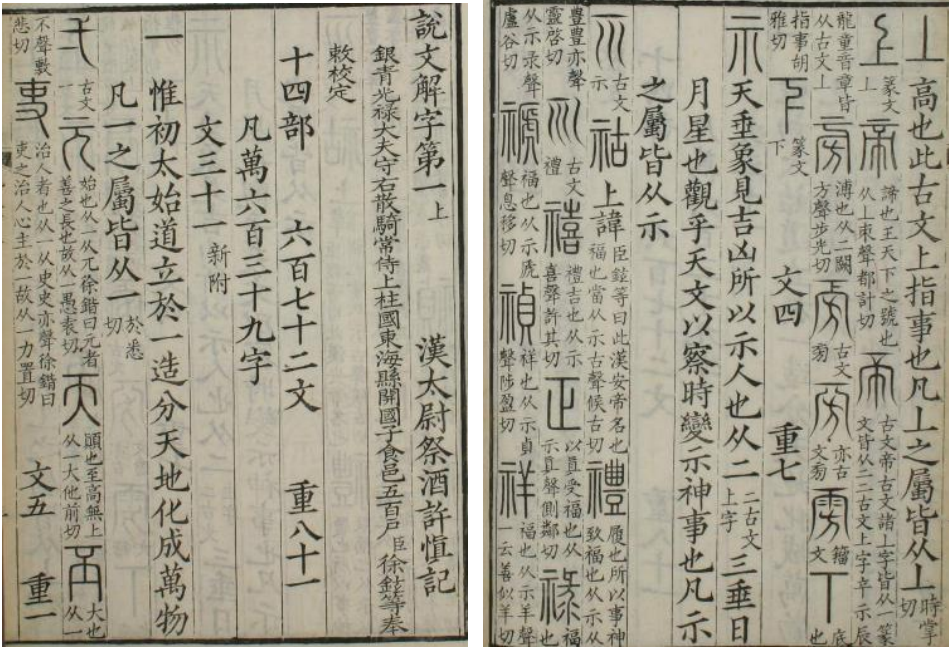 說文解字第一上 漢太尉祭酒許慎記
銀青光祿大夫守右散騎常侍上柱國東海縣開國子食邑五百戶臣徐鉉等奉
敕校定
十四部 六百七十二文 重八十一
凡萬六百三十九字
文三十一新附
一 惟初太始道立於一造分天地化成萬物
凡一之屬皆从一於悉切
弌古文一元始也从一从兀徐鍇曰元者善之長也故从一愚袁切天顚也至高無上从一大他前切丕大也从一
不聲敷悲切吏治人者也从一从史史亦聲徐鍇曰吏之治人心主於一故从一力置切 文五 重一
丄高也此古文上指事也凡丄之屬皆从丄時掌切
上篆文丄帝諦也王天下之號也从丄朿聲都計切帝古文帝古文諸丄字皆从一篆文皆从二二古文上字辛示辰
龍童音章皆从古文丄旁溥也从二闕方聲步光切旁古文㫄旁亦古文㫄雱籒文丅底也
指事胡雅切下篆文丅 文四 重七
示天垂象見吉凶所以示人也从二二古文上字三垂日
月星也觀乎天文以察時變示神事也凡示
之屬皆从示
示古文示祜上諱臣鉉等曰此漢安帝名也福也當从示古聲候古切禮履也所以事神致福也从示从
豊豊亦聲靈啓切禮古文禮禧禮吉也从示喜聲許其切禛以眞受福也从示眞聲側鄰切祿福也
从示彔聲盧谷切禠福也从示虒聲息移切禎祥也从示貞聲陟盈切祥福也从示羊聲一云善似羊切